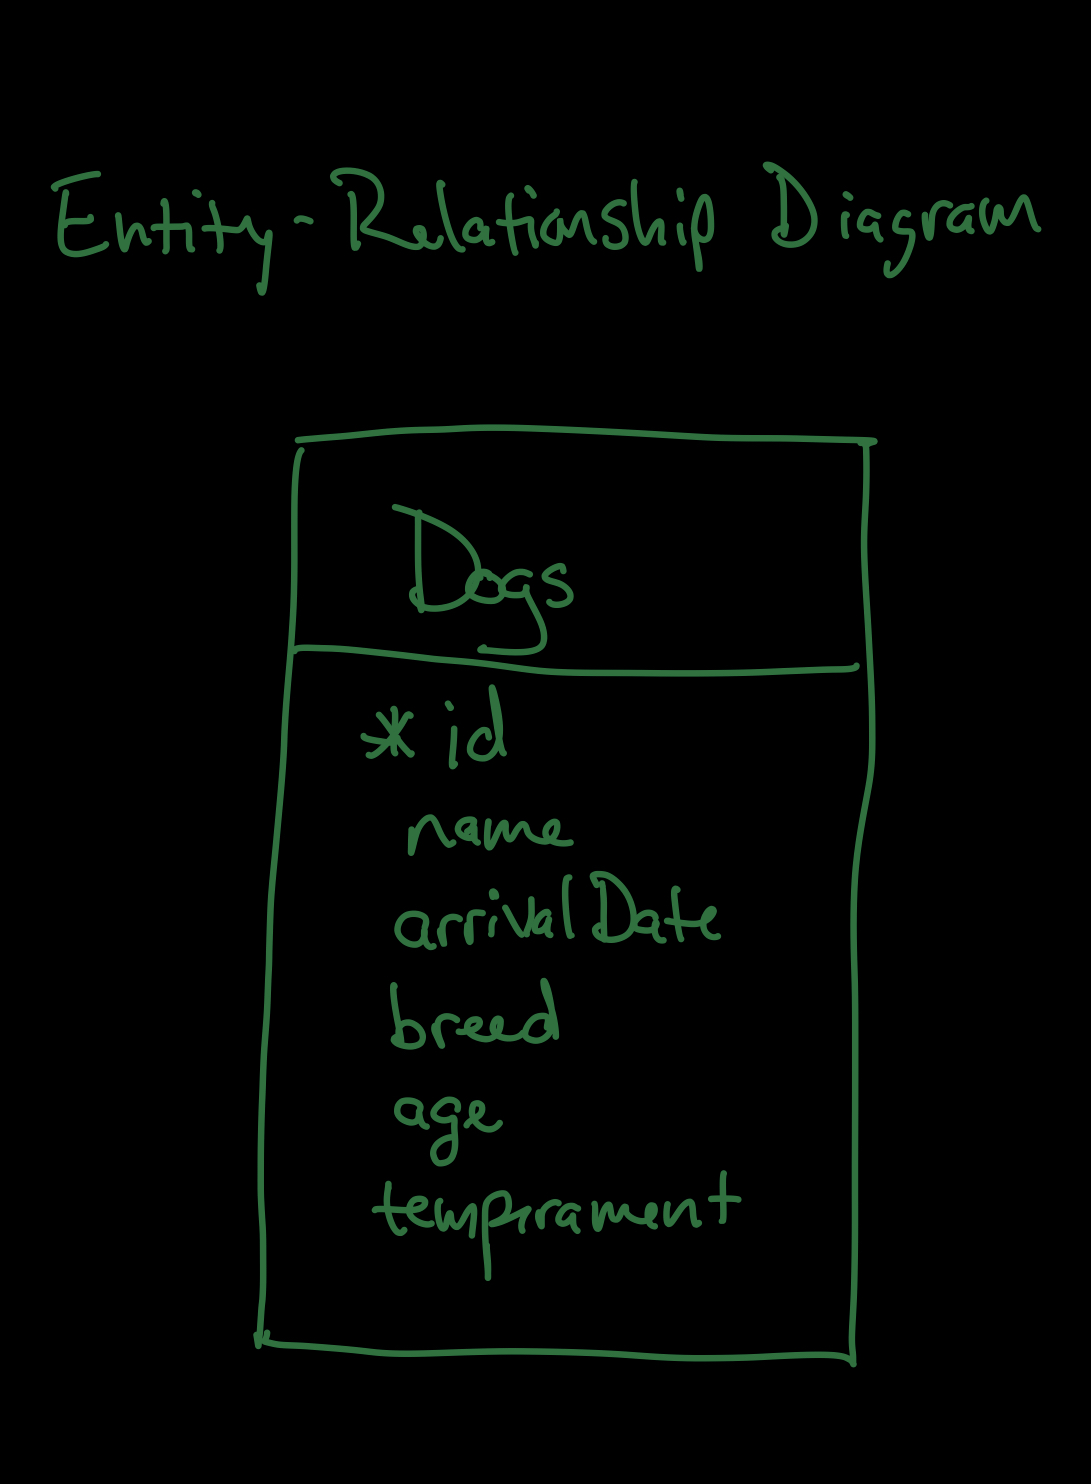 Entity-Relationship Diagram
Dogs
* id
name
arrivalDate
breed
age
temprament